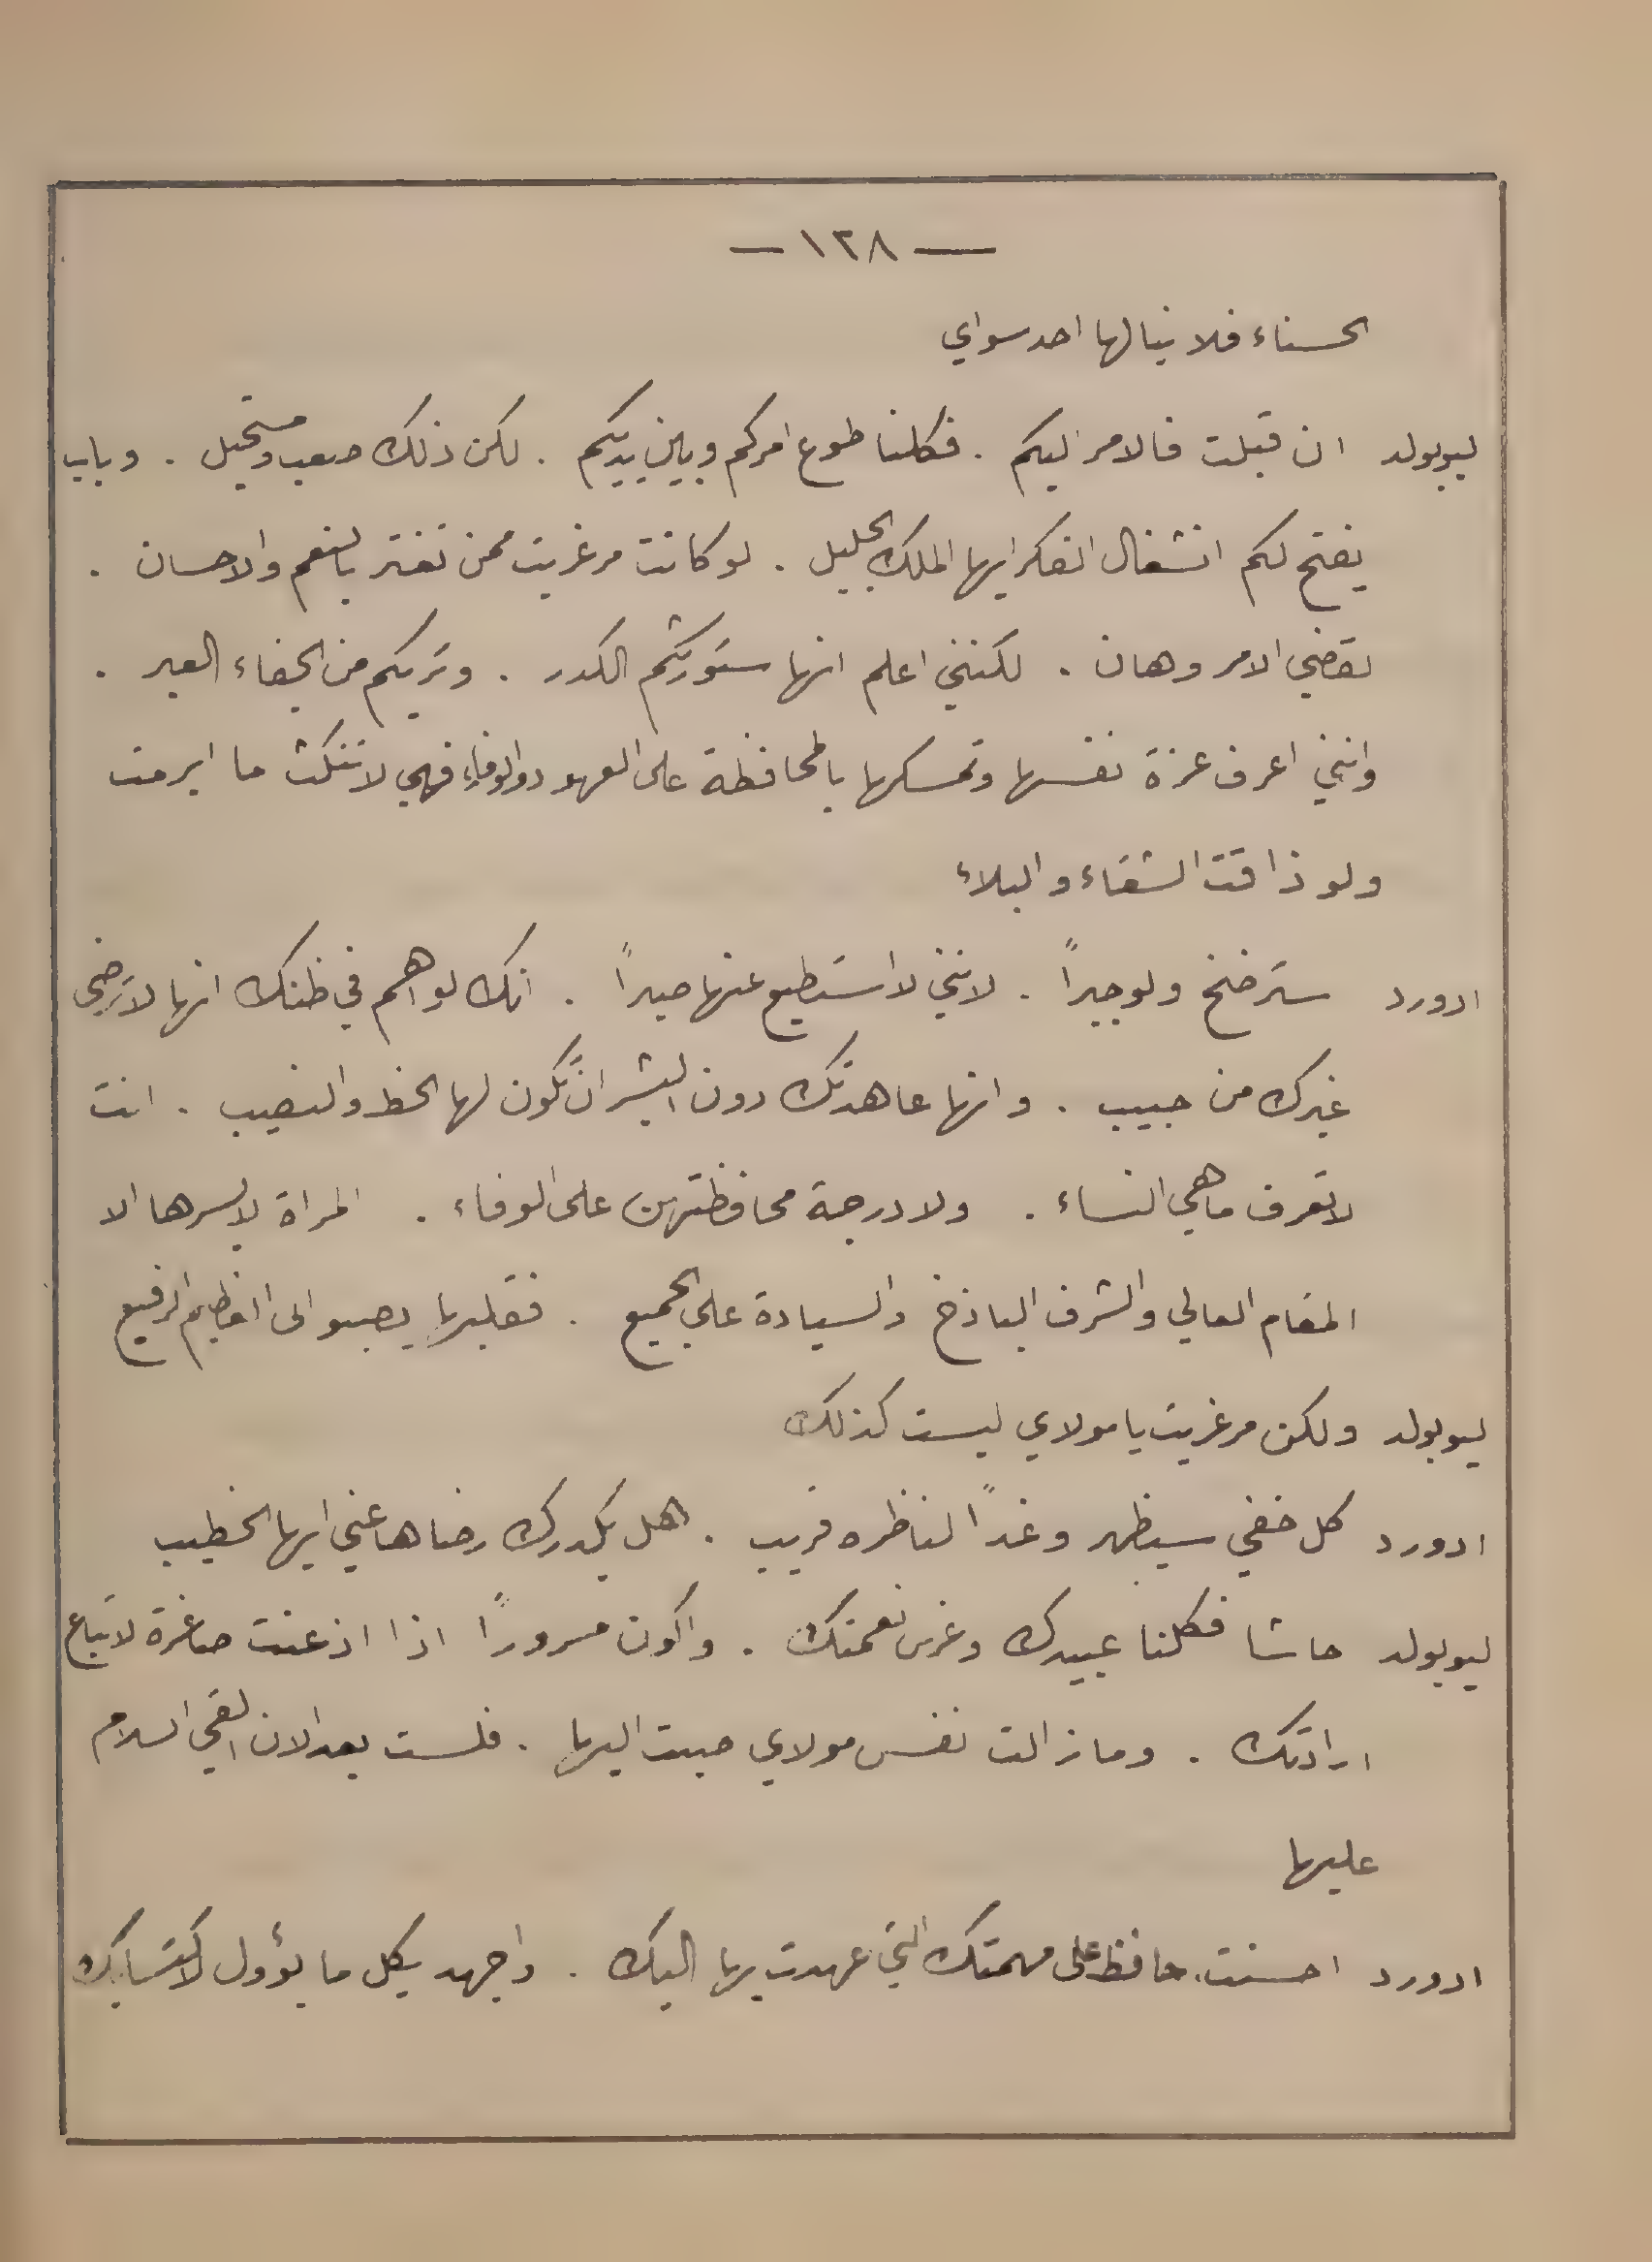 — ١٢٨ —
الحسناء فلا ينالها احد سواي
ليوبولد ان قبلت فالامر اليكم . فكلنا طوع امركم وبين يديكم . لكن ذلك صعب ومستحيل . وباب
يفتح لكم انشغال الفكر ايها الملك الجليل . لو كانت مرغريت ممن تغتر بالنعم والاحسان .
لقضي الامر وهان . لكنني اعلم انها ستورثكم الكدر . وتريكم من الجفاء العبر .
وانني اعرف عزة نفسها وتمسكها بالمحافظة على العهود والوفاء فهي لا تنكث ما ابرمت
ولو ذاقت الشقاء والبلاء
ادورد سترضخ ولو جبراً . لانني لا استطيع عنها صبراً . انك لواهم في ظنك انها لا ترضى
غيرك من حبيب . وانها عاهدتك دون البشر ان تكون لها الحظ والنصيب . انت
لا تعرف ما هي النساء . ولا درجة محافظتهن على الوفاء . المراة لا يسرها الا
المقام العالي والشرف الباذخ والسيادة على الجميع . فقلبها يصبو الى العظايم الرفيع
ليوبولد ولكن مرغريت يا مولاي ليست كذلك
ادورد كل خفي سيظهر وغداً لناظره قريب . اهل يكدرك رضاها عني ايها الخطيب
ليوبولد حاشا فكلنا عبيدك وغرس نعمتك . واكون مسروراً اذا اذعنت صاغرة لاتباع
ارادتك . وما زالت نفس مولاي صبت اليها . فلست بعد الان القي السلام
عليها
ادورد احسنت . حافظ على مهمتك التي عهدت بها اليك . واجهد بكل ما يؤول لاكتسابك